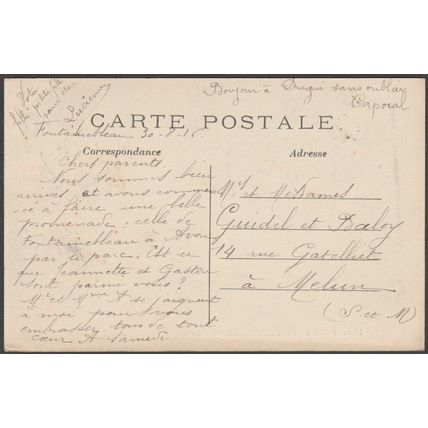 Votre
petite fille
pour la vie
Lucienne
Bonjour à Drague sans oublier
Caporal
CARTE POSTALE
Fontainebleau 30-8-16
Correspondance
Adresse
Chers parents
Nous sommes bien
arrivés, et avons commen
cé à faire une belle
promenade; celle de
Fontainebleau à Avon
par le parc. Est-ce
que Jeannette et Gaston
sont parmi vous?
Mr et Mme A se joignent
à moi pour vous
embrasser tous de tout
cœur A Samedi
Mrs et Mesdames
Guidel et Baloy
14 rue Gatelliet
à Melun
(S. et M)